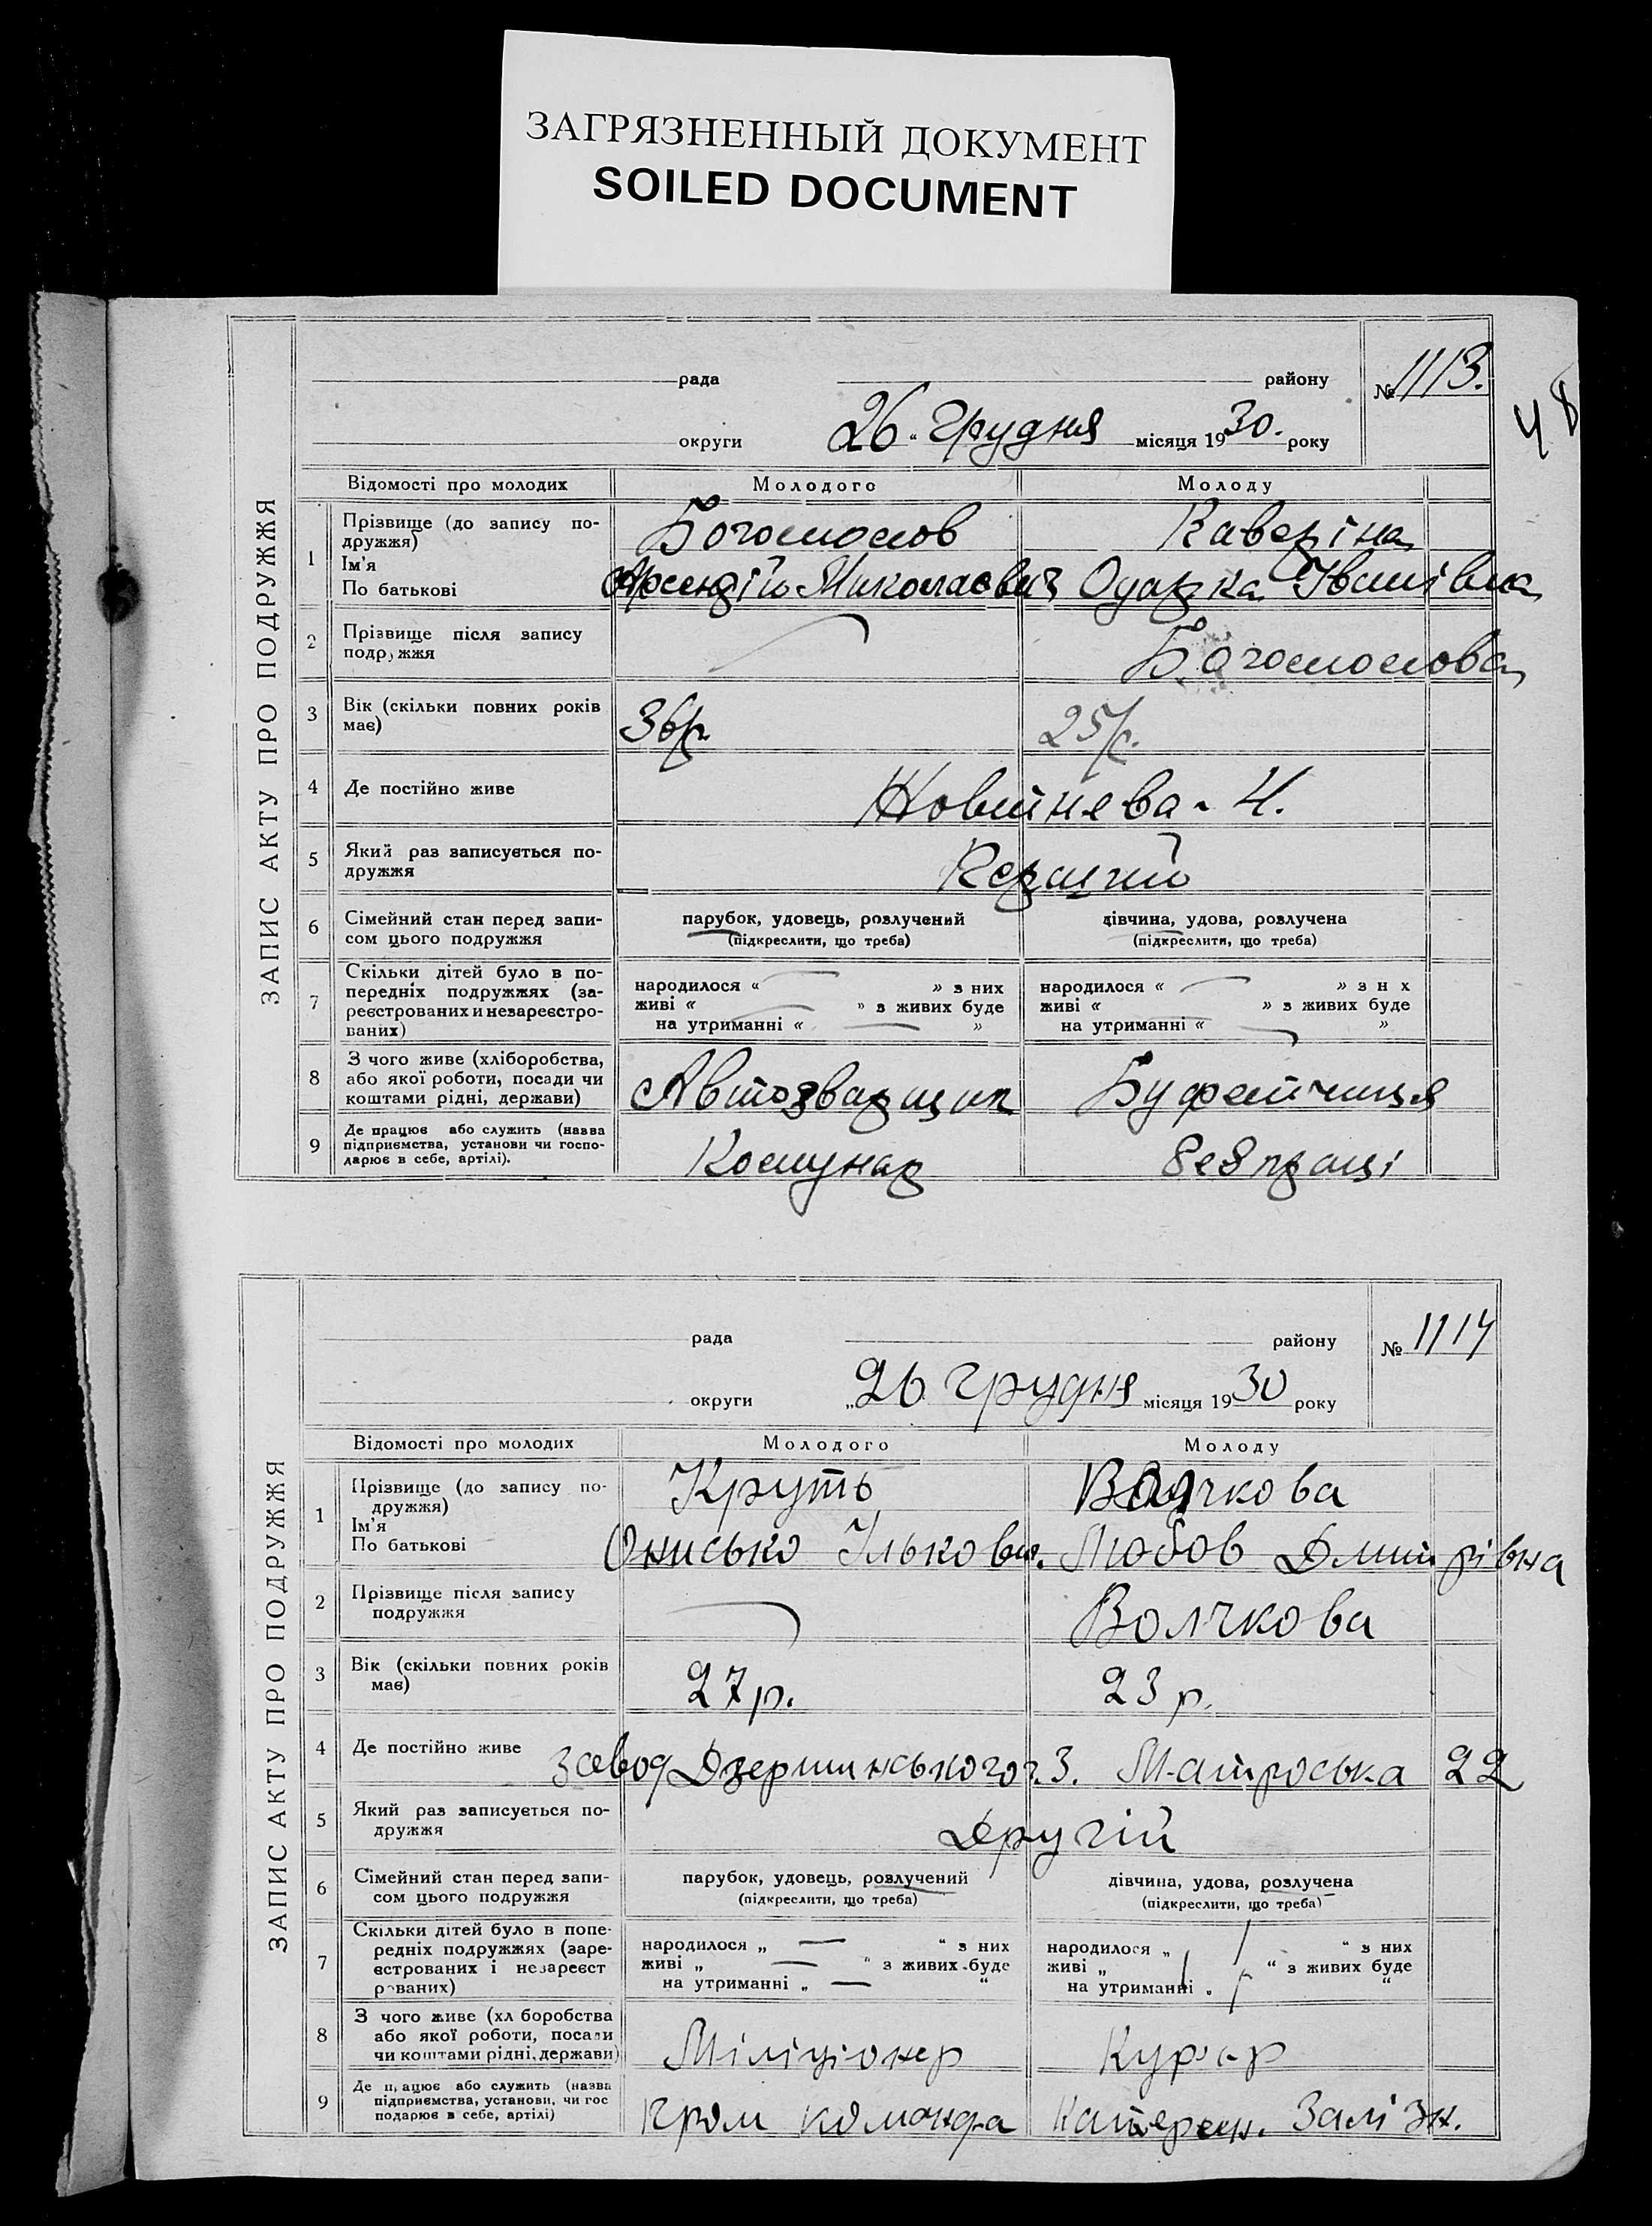 ЗАГРЯЗНЕННЫЙ ДОКУМЕНТ
SOILED DOCUMENT
48
ЗАПИС АКТУ ПРО ПОДРУЖЖЯ
рада району № 1113.
округи 26 „ Грудня місяця 1930. року
Відомості про молодих Молодого Молоду
1 Прізвище (до запису по-
дружжя)
Ім'я
По батькові
Богомолов Каверіна
Арсентій Миколаєвич Одарка Іванівна
2 Прізвище після запису
подружжя
Богомолова
3 Вік (скільки повних років
має)
36 р. 25 р.
4 Де постійно живе
5 Який раз записується по-
дружжя
Перший
6 Сімейний стан перед запи-
сом цього подружжя
парубок, удовець, розлучений дівчина, удова, розлучена
(підкреслити, що треба) (підкреслити, що треба)
7 Скільки дітей було в по-
передніх подружжях (за-
реєстрованих и незареєстро-
ваних)
народилося « » з них народилося « » з н х
живі « » з живих буде живі « » з живих буде
на утриманні « » на утриманні « »
8 З чого живе (хліборобства,
або якої роботи, посади чи
коштами рідні, держави)
Автозварщик Буфетчиця
9 Де працює або служить (назва
підприємства, установи чи госпо-
дарює в себе, артілі).
Комунар без праці
ЗАПИС АКТУ ПРО ПОДРУЖЖЯ
рада району № 1114
округи „26 Грудня місяця 1930 року
Відомості про молодих Молодого Молоду
1 Прізвище (до запису по-
дружжя)
Ім'я
По батькові
Круть Волчкова
Онисько Ількович. Любов Дмитрівна
2 Прізвище після запису
подружжя
Волчкова
3 Вік (скільки повних років
має)
27 р. 23 р.
4 Де постійно живе
завод Дзержинського 3. Матроська 22
5 Який раз записується по-
дружжя
Другій
6 Сімейний стан перед запи-
сом цього подружжя
парубок, удовець, розлучений дівчина, удова, розлучена
(підкреслити, що треба) (підкреслити, що треба)
7 Скільки дітей було в попе-
редніх подружжях (заре-
єстрованих і незареєст
рованих)
народилося „ — “ з них народилося „ 1 “ з них
живі „ — “ з живих буде живі „ 1 “ з живих буде
на утриманні „ — “ на утриманні „ 1 “
8 З чого живе (хл боробства
або якої роботи, посади
чи коштами рідні, держави)
Міліціонер Курьер
9 Де працює або служить (назва
підприємства, установи, чи гос
подарює в себе, артілі)
пром команда Катерен. Залізн.